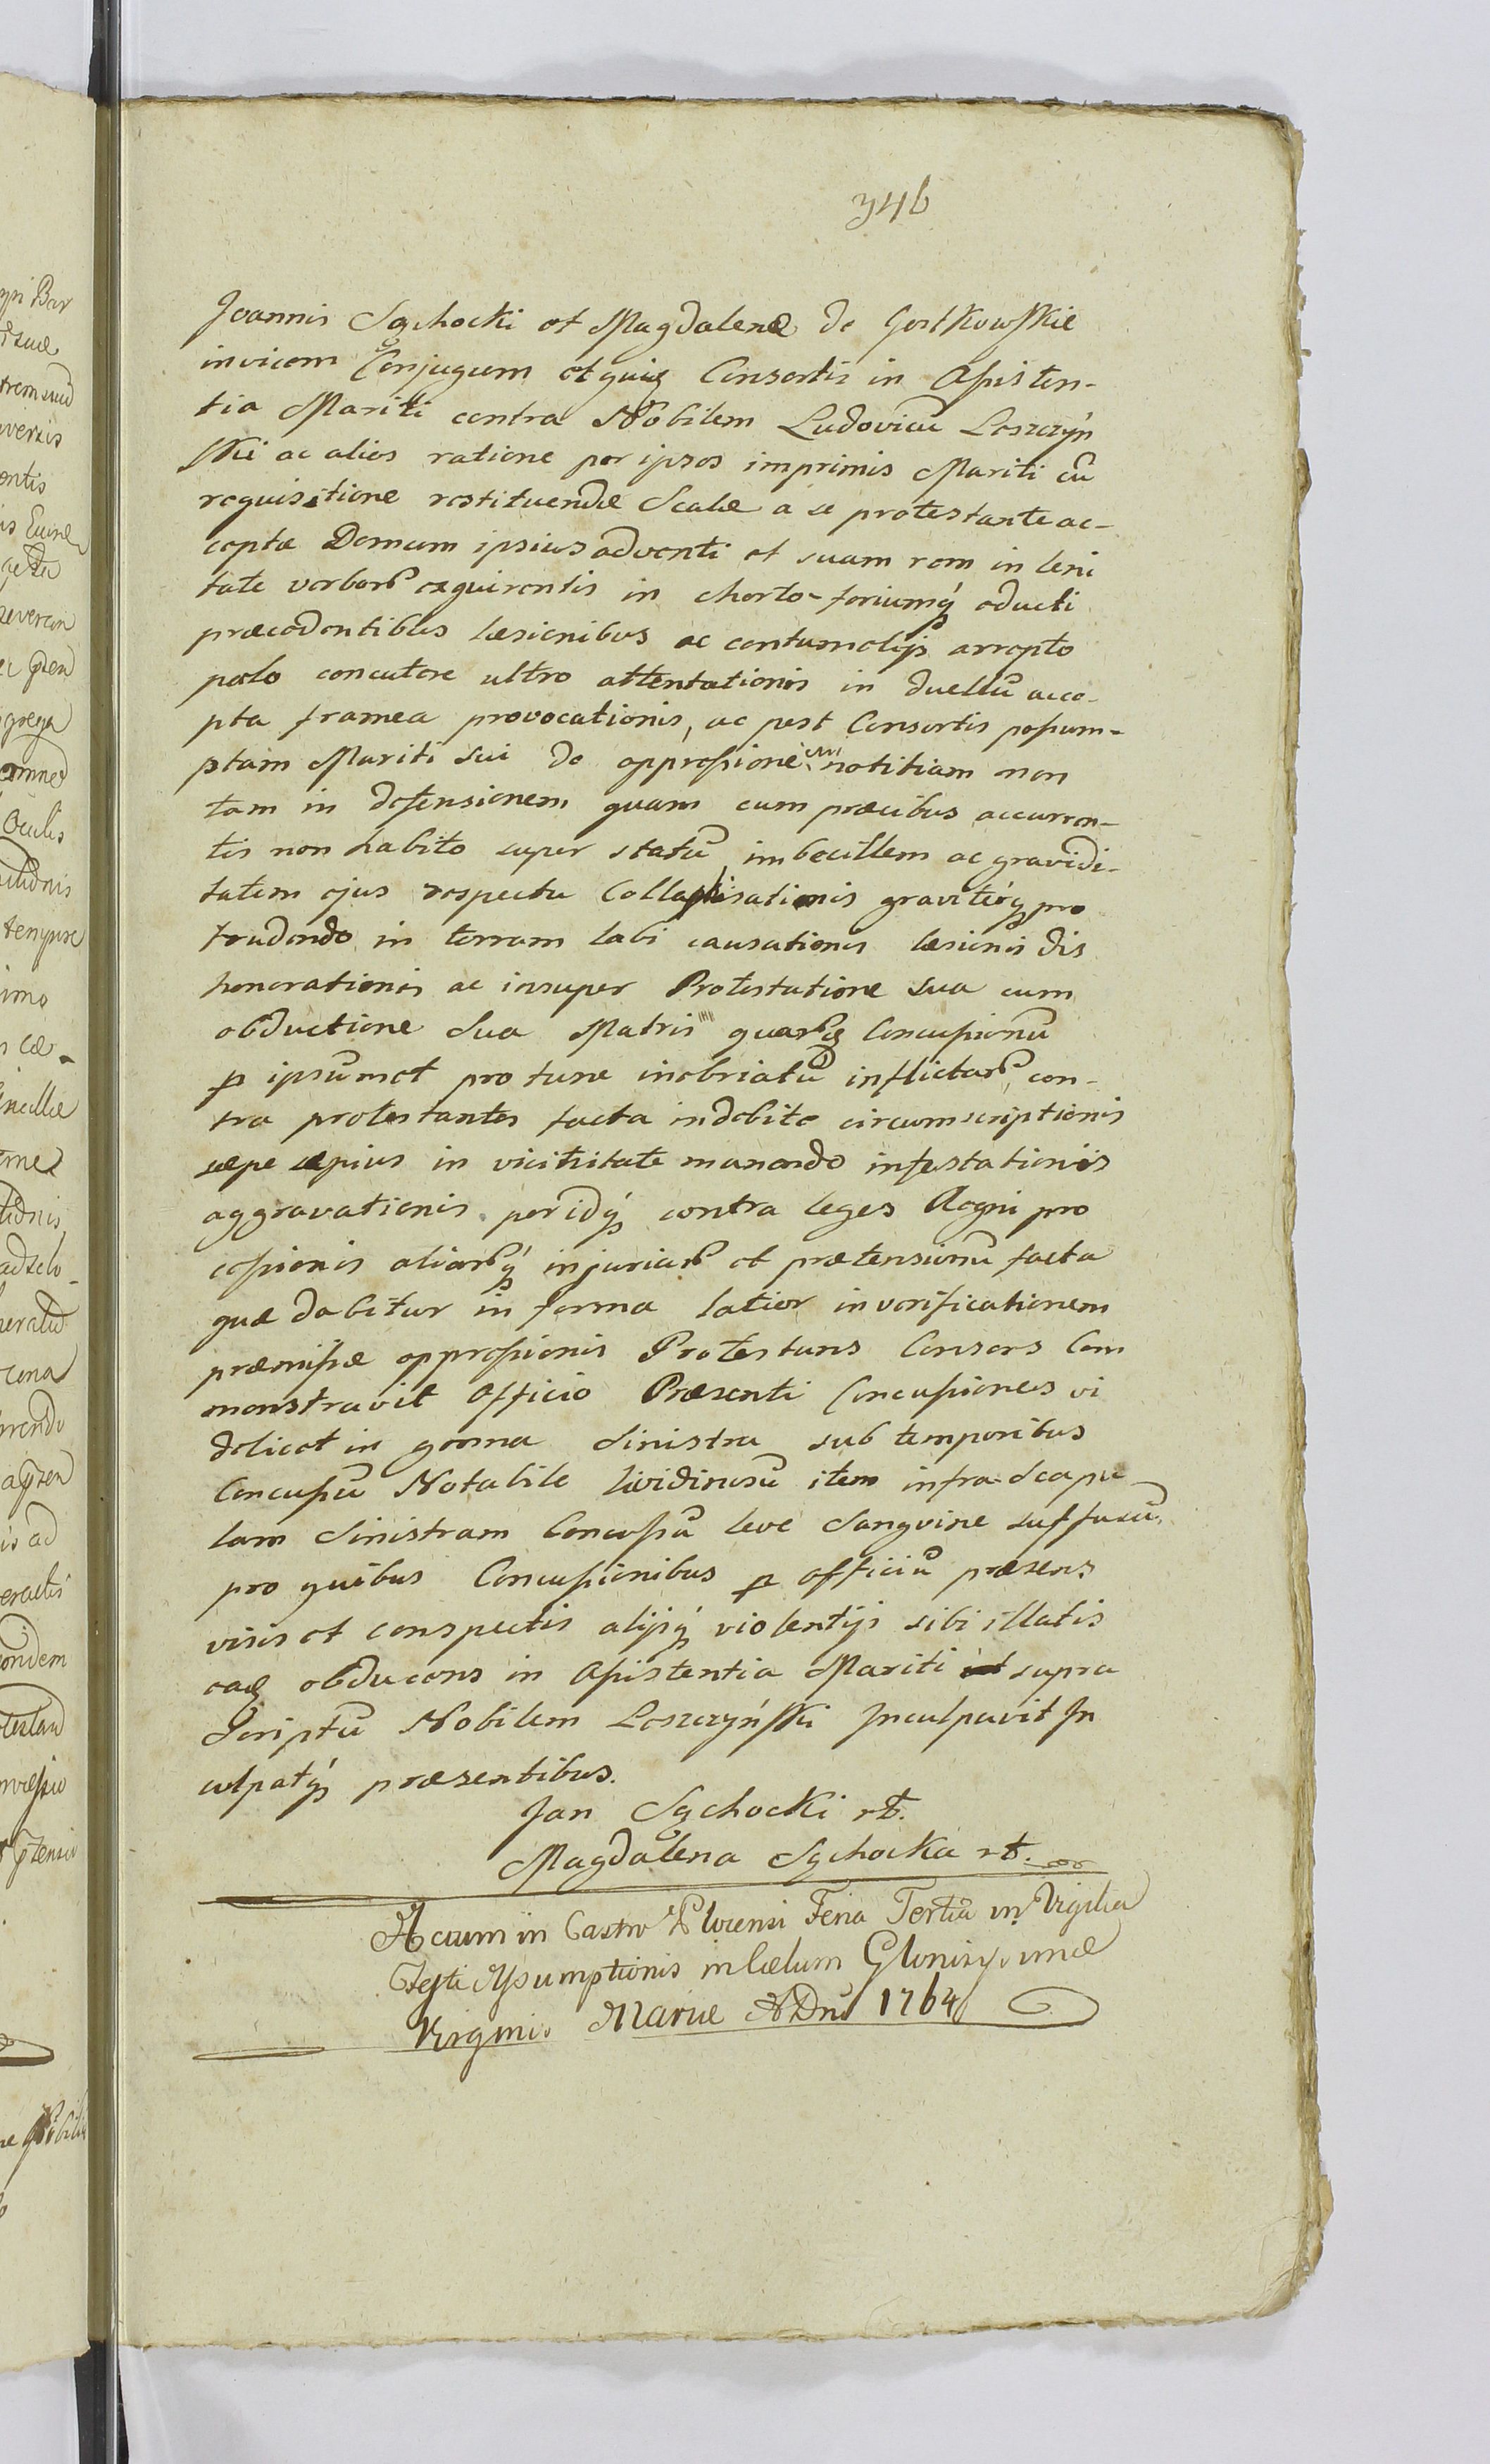 346
Joannis Sąchocki et Magdalenæ de Gostkowskie
invicem Conjugum et quię Consortis in Assisten-
tia Mariti contra Nobilem Ludovicū Leszczyń
ski ac alios ratione per ipsos imprimis Mariti cū
requisitione restituendæ Scalæ a se protestante ac-
ceptæ Domum ipsius adventi et suam rem in leni
tate verbor exquirentis in chorto-foriumq́ educti
præcedentibus læsionibus ac contumelijs arrepto
palo concutere ultro attentationis in duellū acce-
pta framea provocationis, ac post Consortis ressum-
ptam Mariti sui de oppressione notitiam non
tam in defensionem quam cum præcibus accurren-
tis non habito super statū imbecillem ac gravidi-
tatem ejus respectu Collaphisationis graviterq́ pro
trudendo in terram labi causationis læsionis dis
honorationis ac insuper Protestatione sua cum
obductione Sua Matris quarę Concussionū
p ipsūmet pro tunc inebriatū inflictar con-
tra protestantes facta indebite circumscriptionis
sæpe sæpius in vicinitate manendo infestationis
aggravationis peridq́ contra leges Regni pro
cessionis aliarq́ injuriar et prætensionū facta
quæ dabitur in forma latior in verificationem
præmissæ oppressionis Protestans Consors Com
monstravit Officio Præsenti Concussiones vi
delicet in gemna Sinistra sub temporibus
Concussū Notabile lividinosū item infra Scapu
lam Sinistram Concussū leve Sangvine suffusū
pro quibus Concussionibus p officiū præsens
visis et conspectis alijsq́ violentijs sibi illatis
eaę obducens in Assistentia Mariti supra
Scriptū Nobilem Leszczyński Inculpavit In
culpatq́ præsentibus.
Jan Sąchocki rt.
Magdalena Sąchocka rt.
Actum in Castro Plocensi Feria Tertia in Vigilia
Festi Assumptionis in Cælum Glorissimæ
Virginis Mariæ A Dni 1764